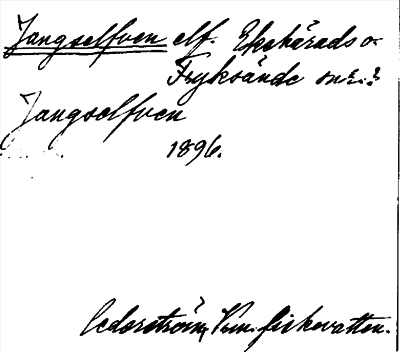 Jangselfven elf. Ekshärads o.
Fryksände snr.?
Jangselfven
1896.
Cederström, Vrm. fiskevatten.